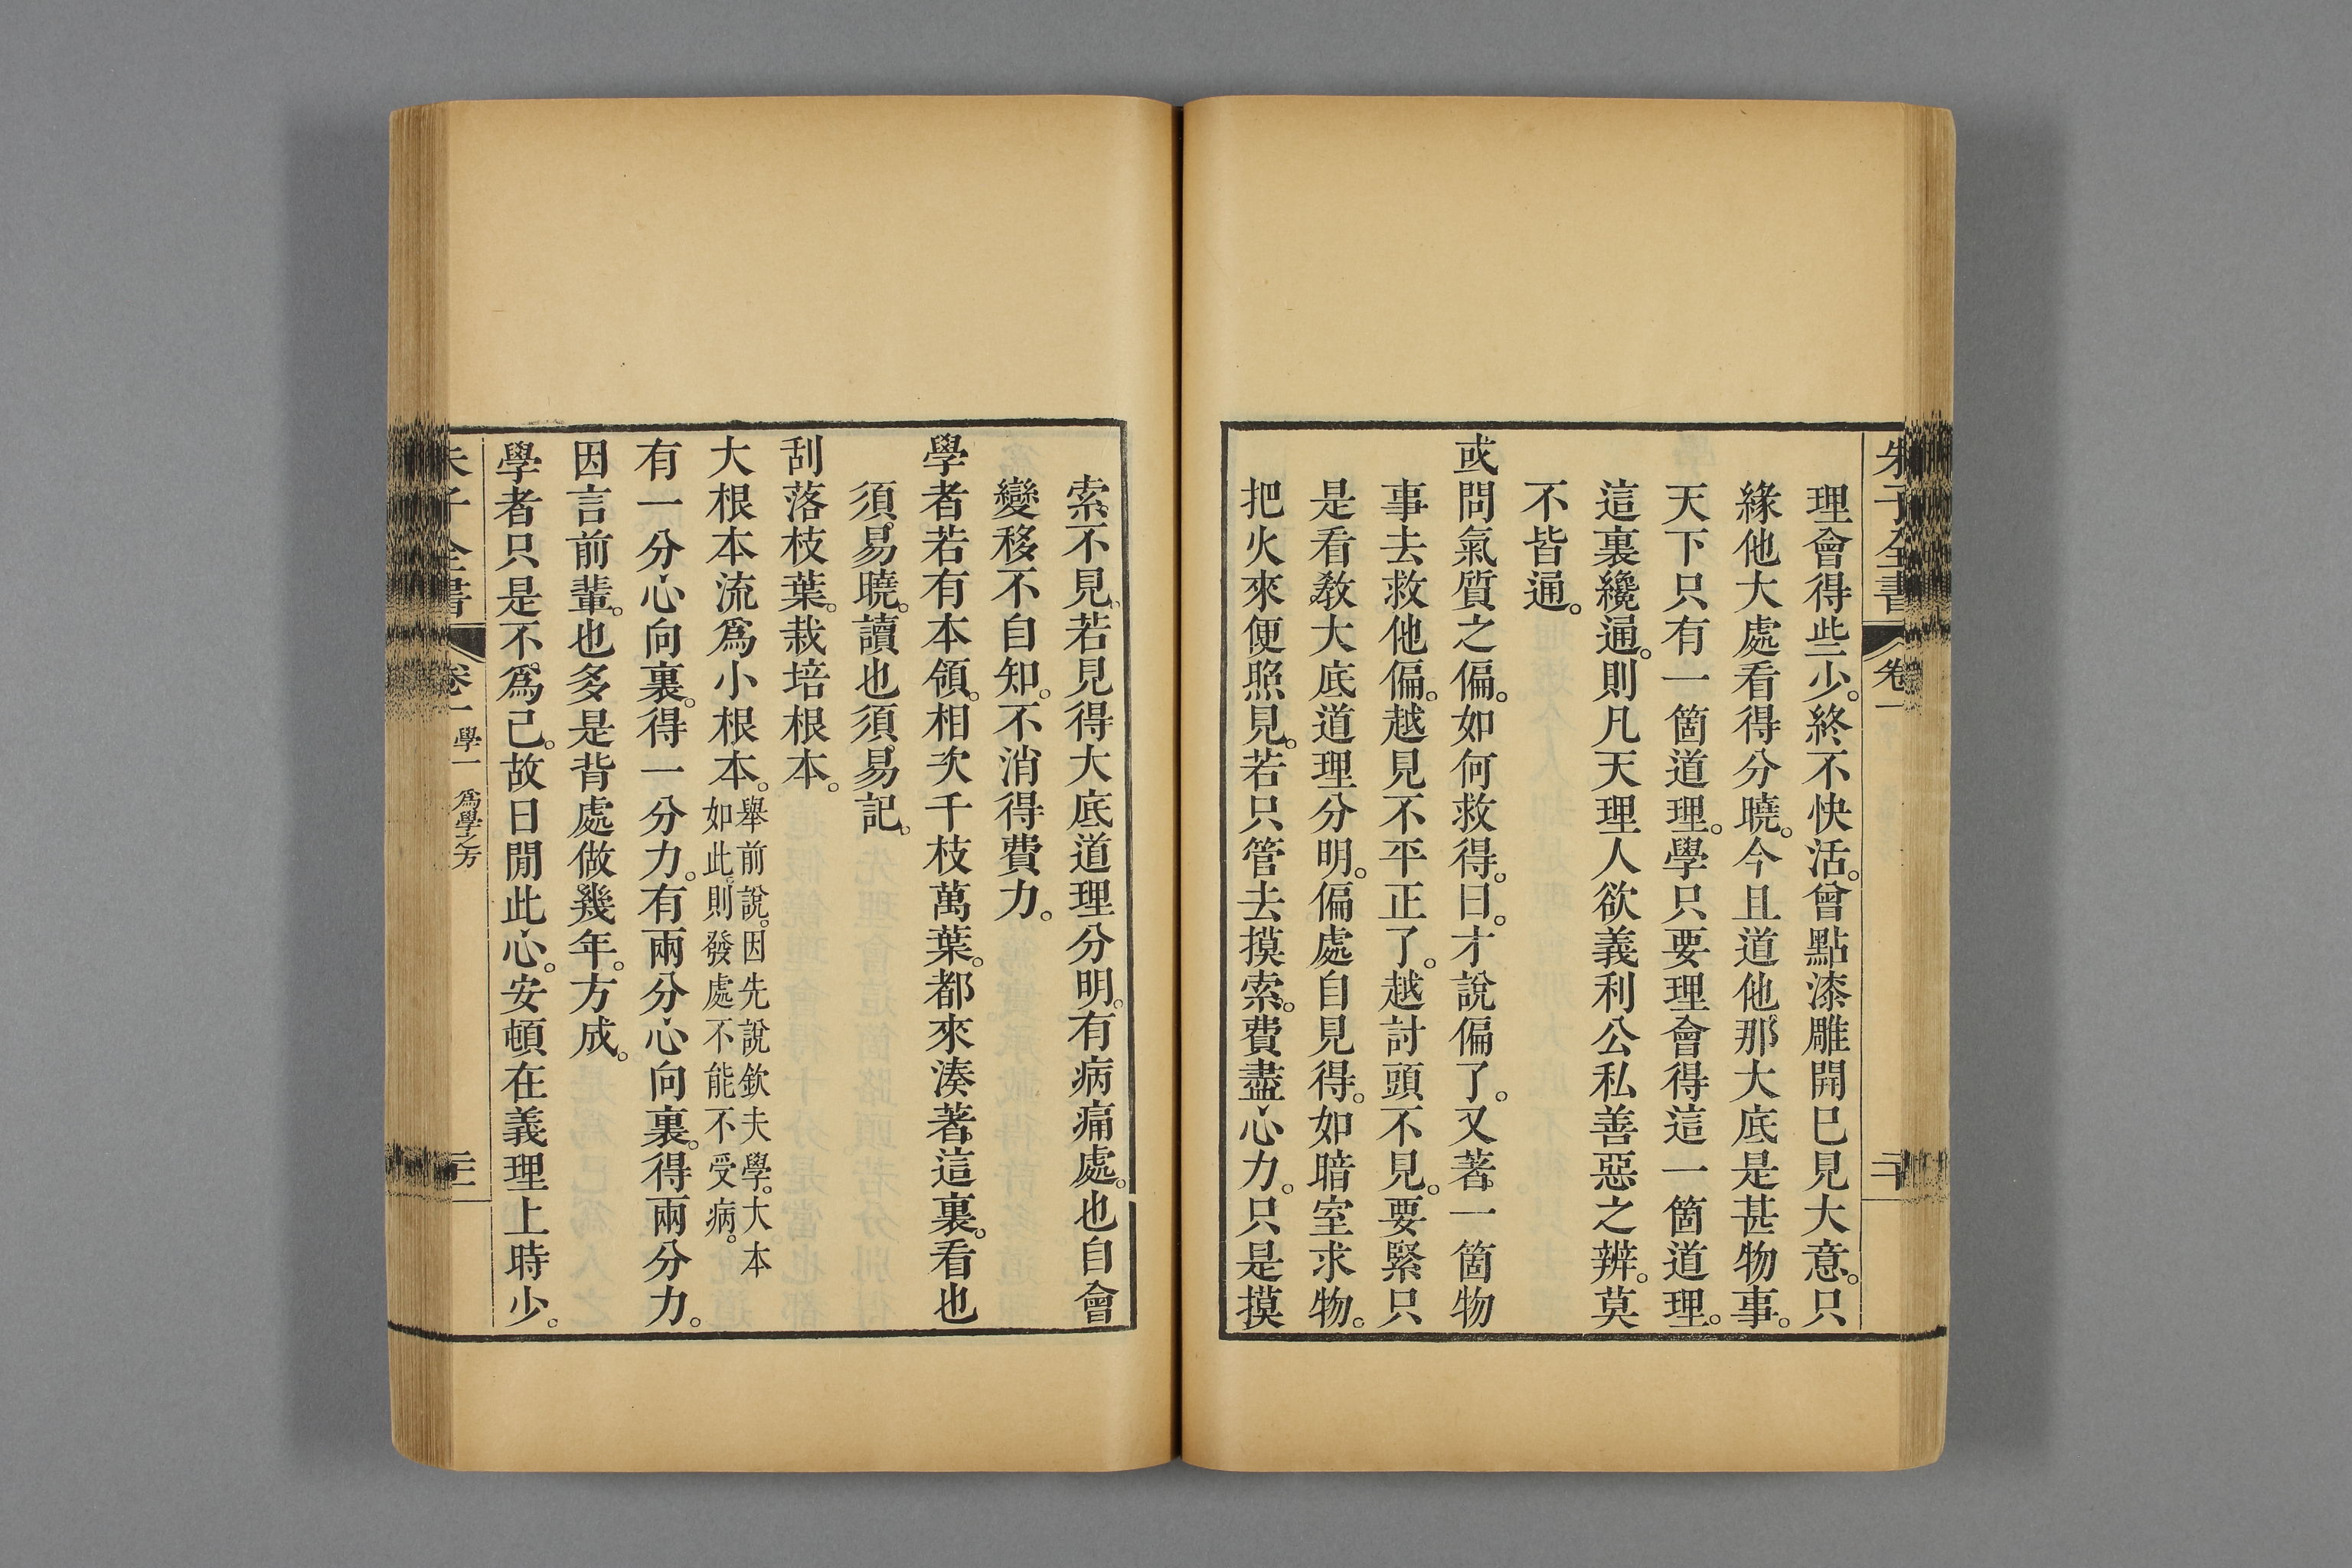 朱子全書 卷一 二十
理會得些少。終不快活。曾點漆雕開巳見大意。只
緣他大處看得分曉。今且道他那大底是甚物事。
天下只有一箇道理。學只要理會得這一箇道理。
這裏纔通。則凡天理人欲義利公私善惡之辨。莫
不皆通。
或問氣質之偏。如何救得。曰。才說偏了。又著一箇物
事去救他偏。越見不平正了。越討頭不見。要緊只
是看敎大底道理分明。偏處自見得。如暗室求物。
把火來便照見。若只管去摸索。費盡心力。只是摸
索不見。若見得大底道理分明。有病痛處。也自會
變移不自知。不消得費力。
學者若有本領。相次千枝萬葉。都來湊著這裏。看也
須易曉。讀也須易記。
刮落枝葉。栽培根本。
大根本流爲小根本。舉前說。因先說欽夫學。大本
如此。則發處不能不受病。
有一分心向裏。得一分力。有兩分心向裏。得兩分力。
因言前輩。也多是背處做幾年。方成。
學者只是不爲己。故日閒此心。安頓在義理上時少。
朱子全書 卷一 學一 爲學之方